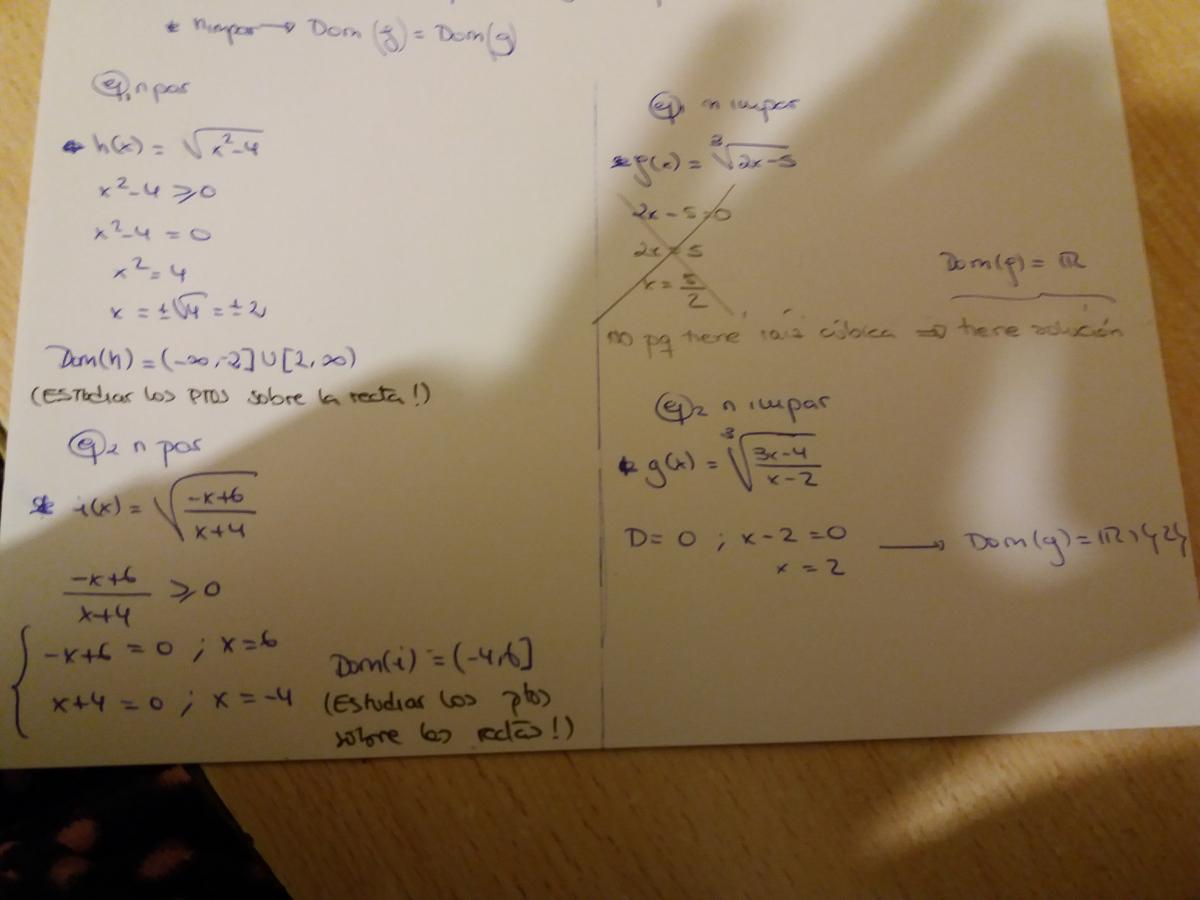 * n impar → Dom(f) = Dom(g)
ej1 n par
* h(x) = √(x²-4)
x²-4 ≥ 0
x²-4 = 0
x² = 4
x = ±√4 = ±2
Dom(h) = (-∞,-2] ∪ [2,∞)
(Estudiar los ptos sobre la recta!)
ej2 n par
* i(x) = √((-x+6)/(x+4))
(-x+6)/(x+4) ≥ 0
{ -x+6 = 0 ; x=6
x+4 = 0 ; x = -4
Dom(i) = (-4,6]
(Estudiar los ptos
sobre las rectas!)
ej1 n impar
* f(x) = ³√(2x-5)
2x-5=0
2x=5
x = 5/2
Dom(f) = ℝ
no pq tiene raíz cúbica ⇒ tiene solución
ej2 n impar
* g(x) = ³√((3x-4)/(x-2))
D = 0 ; x-2 = 0 → Dom(g) = ℝ \ {2}
x = 2